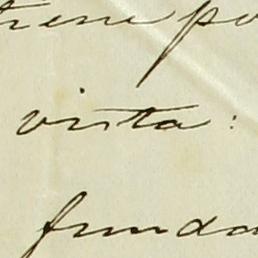 tiene po
vista:
funda